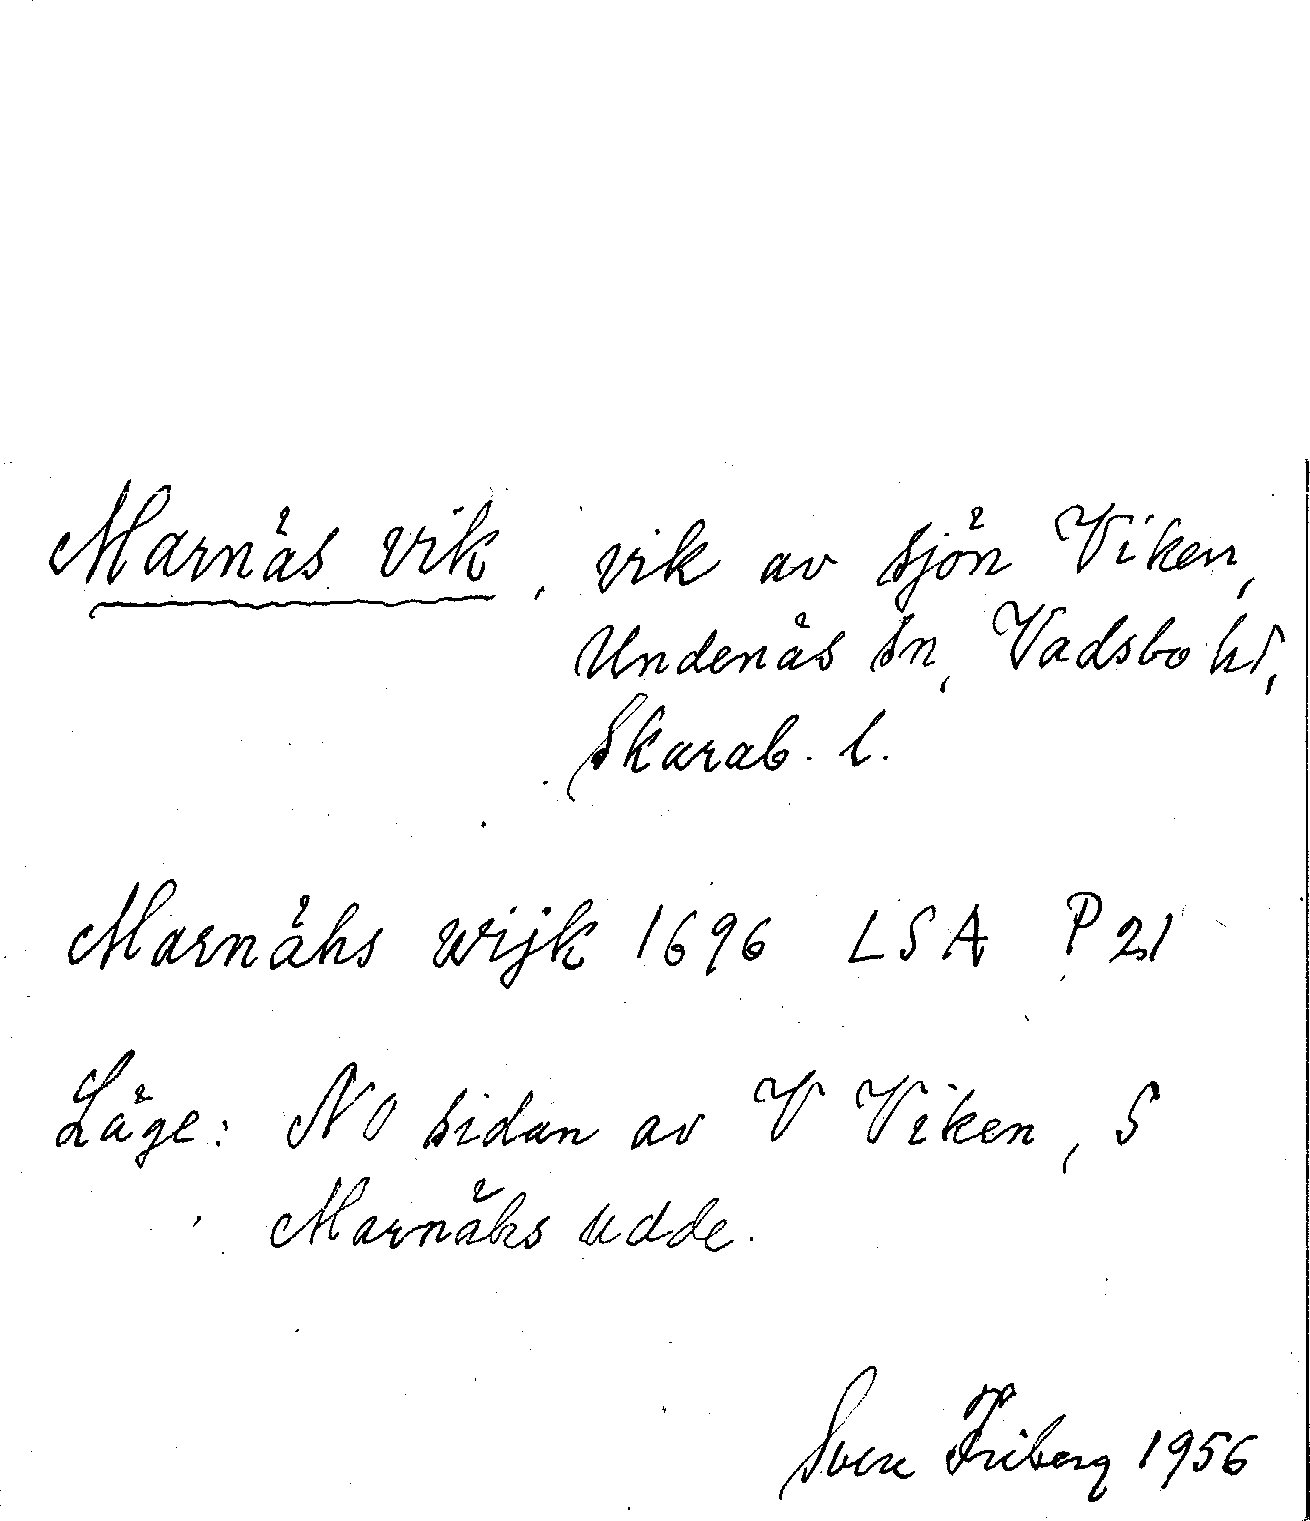 Marnäs vik, vik av sjön Viken,
Undenäs sn, Vadsbo hd,
Skarab. l.
Marnähs wijk 1696 LSA P 21
Läge: NO sidan av V Viken, S
Marnäks udde.
Sven Friberg 1956